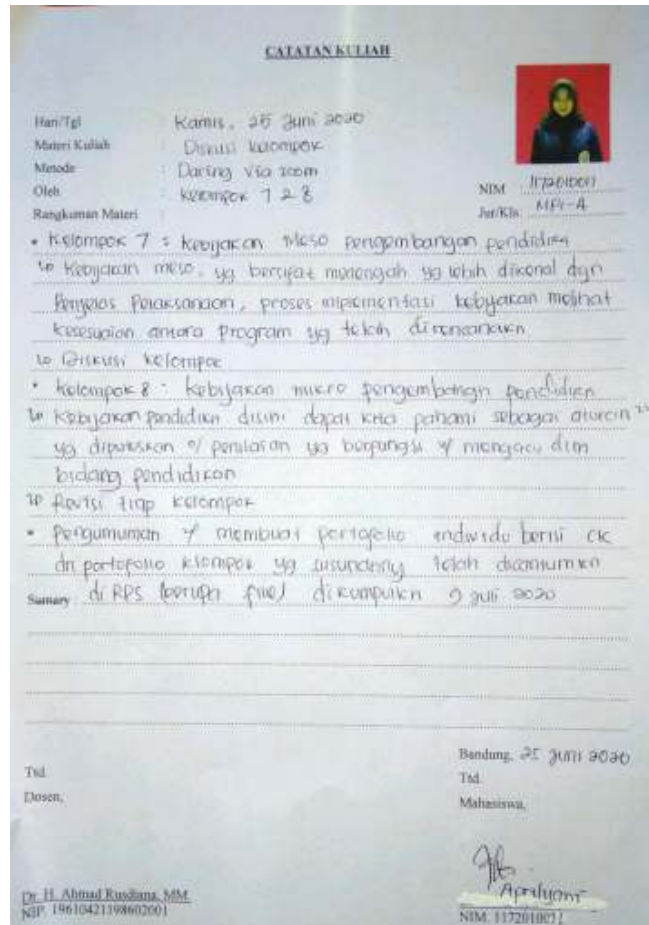 CATATAN KULIAH
Hari/Tgl : Kamis, 25 Juni 2020
Materi Kuliah : Diskusi kelompok
Metode : Daring via zoom
Oleh : kelompok 7 & 8
NIM :
Rangkuman Materi :
Jur/Kls : MPI-A
• Kelompok 7 : kebijakan Meso pengembangan pendidikn
↳ Kebijakan meso, yg bersifat menengah yg lebih dikenal dgn
Penjelas Pelaksanaan, proses implementasi kebijakan melihat
kesesuaian antara program yg telah direncanakn
↳ Diskusi kelompok
• kelompok 8 : kebijakan mikro pengembangn pendidikn
↳ Kebijakan pendidikn disini dapat kita pahami sebagai aturan
yg diputuskan o/ peraturan yg berfungsi y/ mengacu dlm
bidang pendidikan
↳ Revisi tiap kelompok
• Pengumuman y/ membuat portofolio individu berisi ck
dn portofolio klompok yg susunannya telah dicantumkn
Sumary : di RPS (berupa file) dikumpulkn 9 juli 2020
Bandung, 25 Juni 2020
Ttd. Ttd.
Dosen, Mahasiswa,
Apriliyani
Dr. H. Ahmad Rusdiana, MM
NIP. 196104211986021001
NIM.